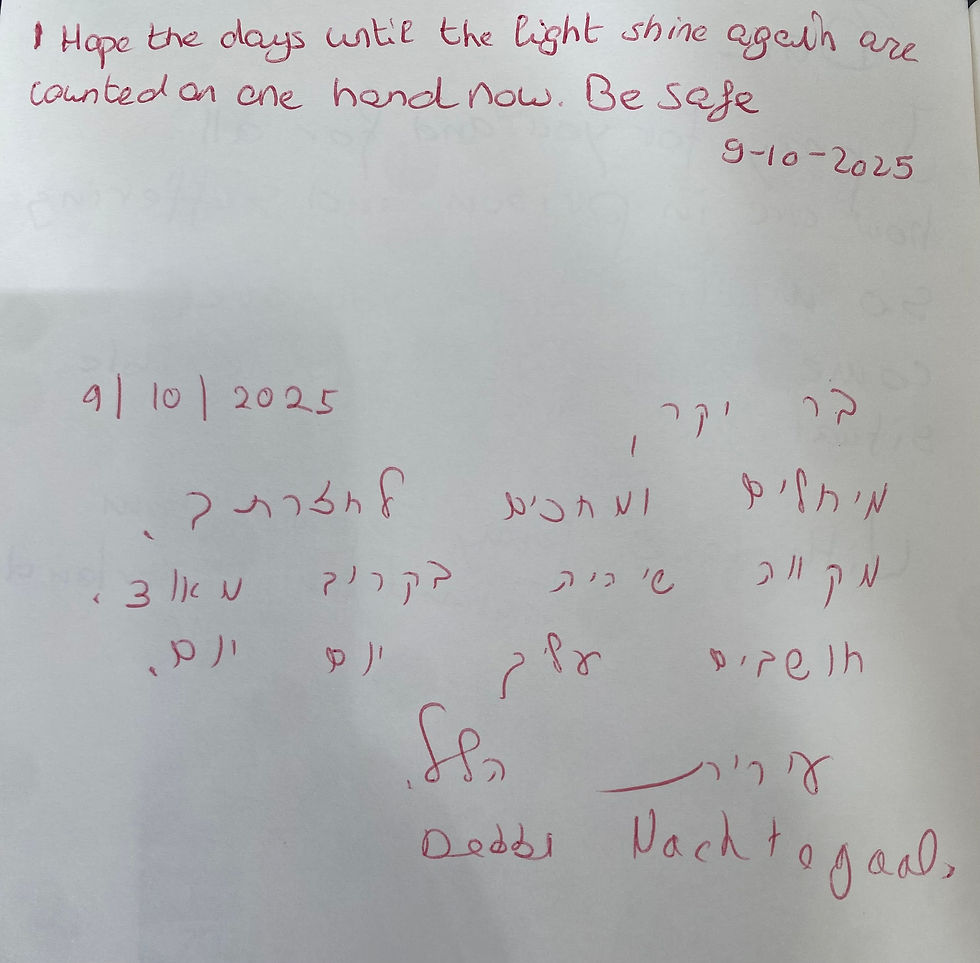 I Hope the days until the light shine again are
counted on one hand now. Be safe
9-10-2025
9/10/2025
בר יקר,
מיחלים ומחכים לחזרתך.
מקווה שיהיה בקרוב מאוד.
חושבים עליך יום יום.
עירית הלל.
Debbi Nachtegaal,